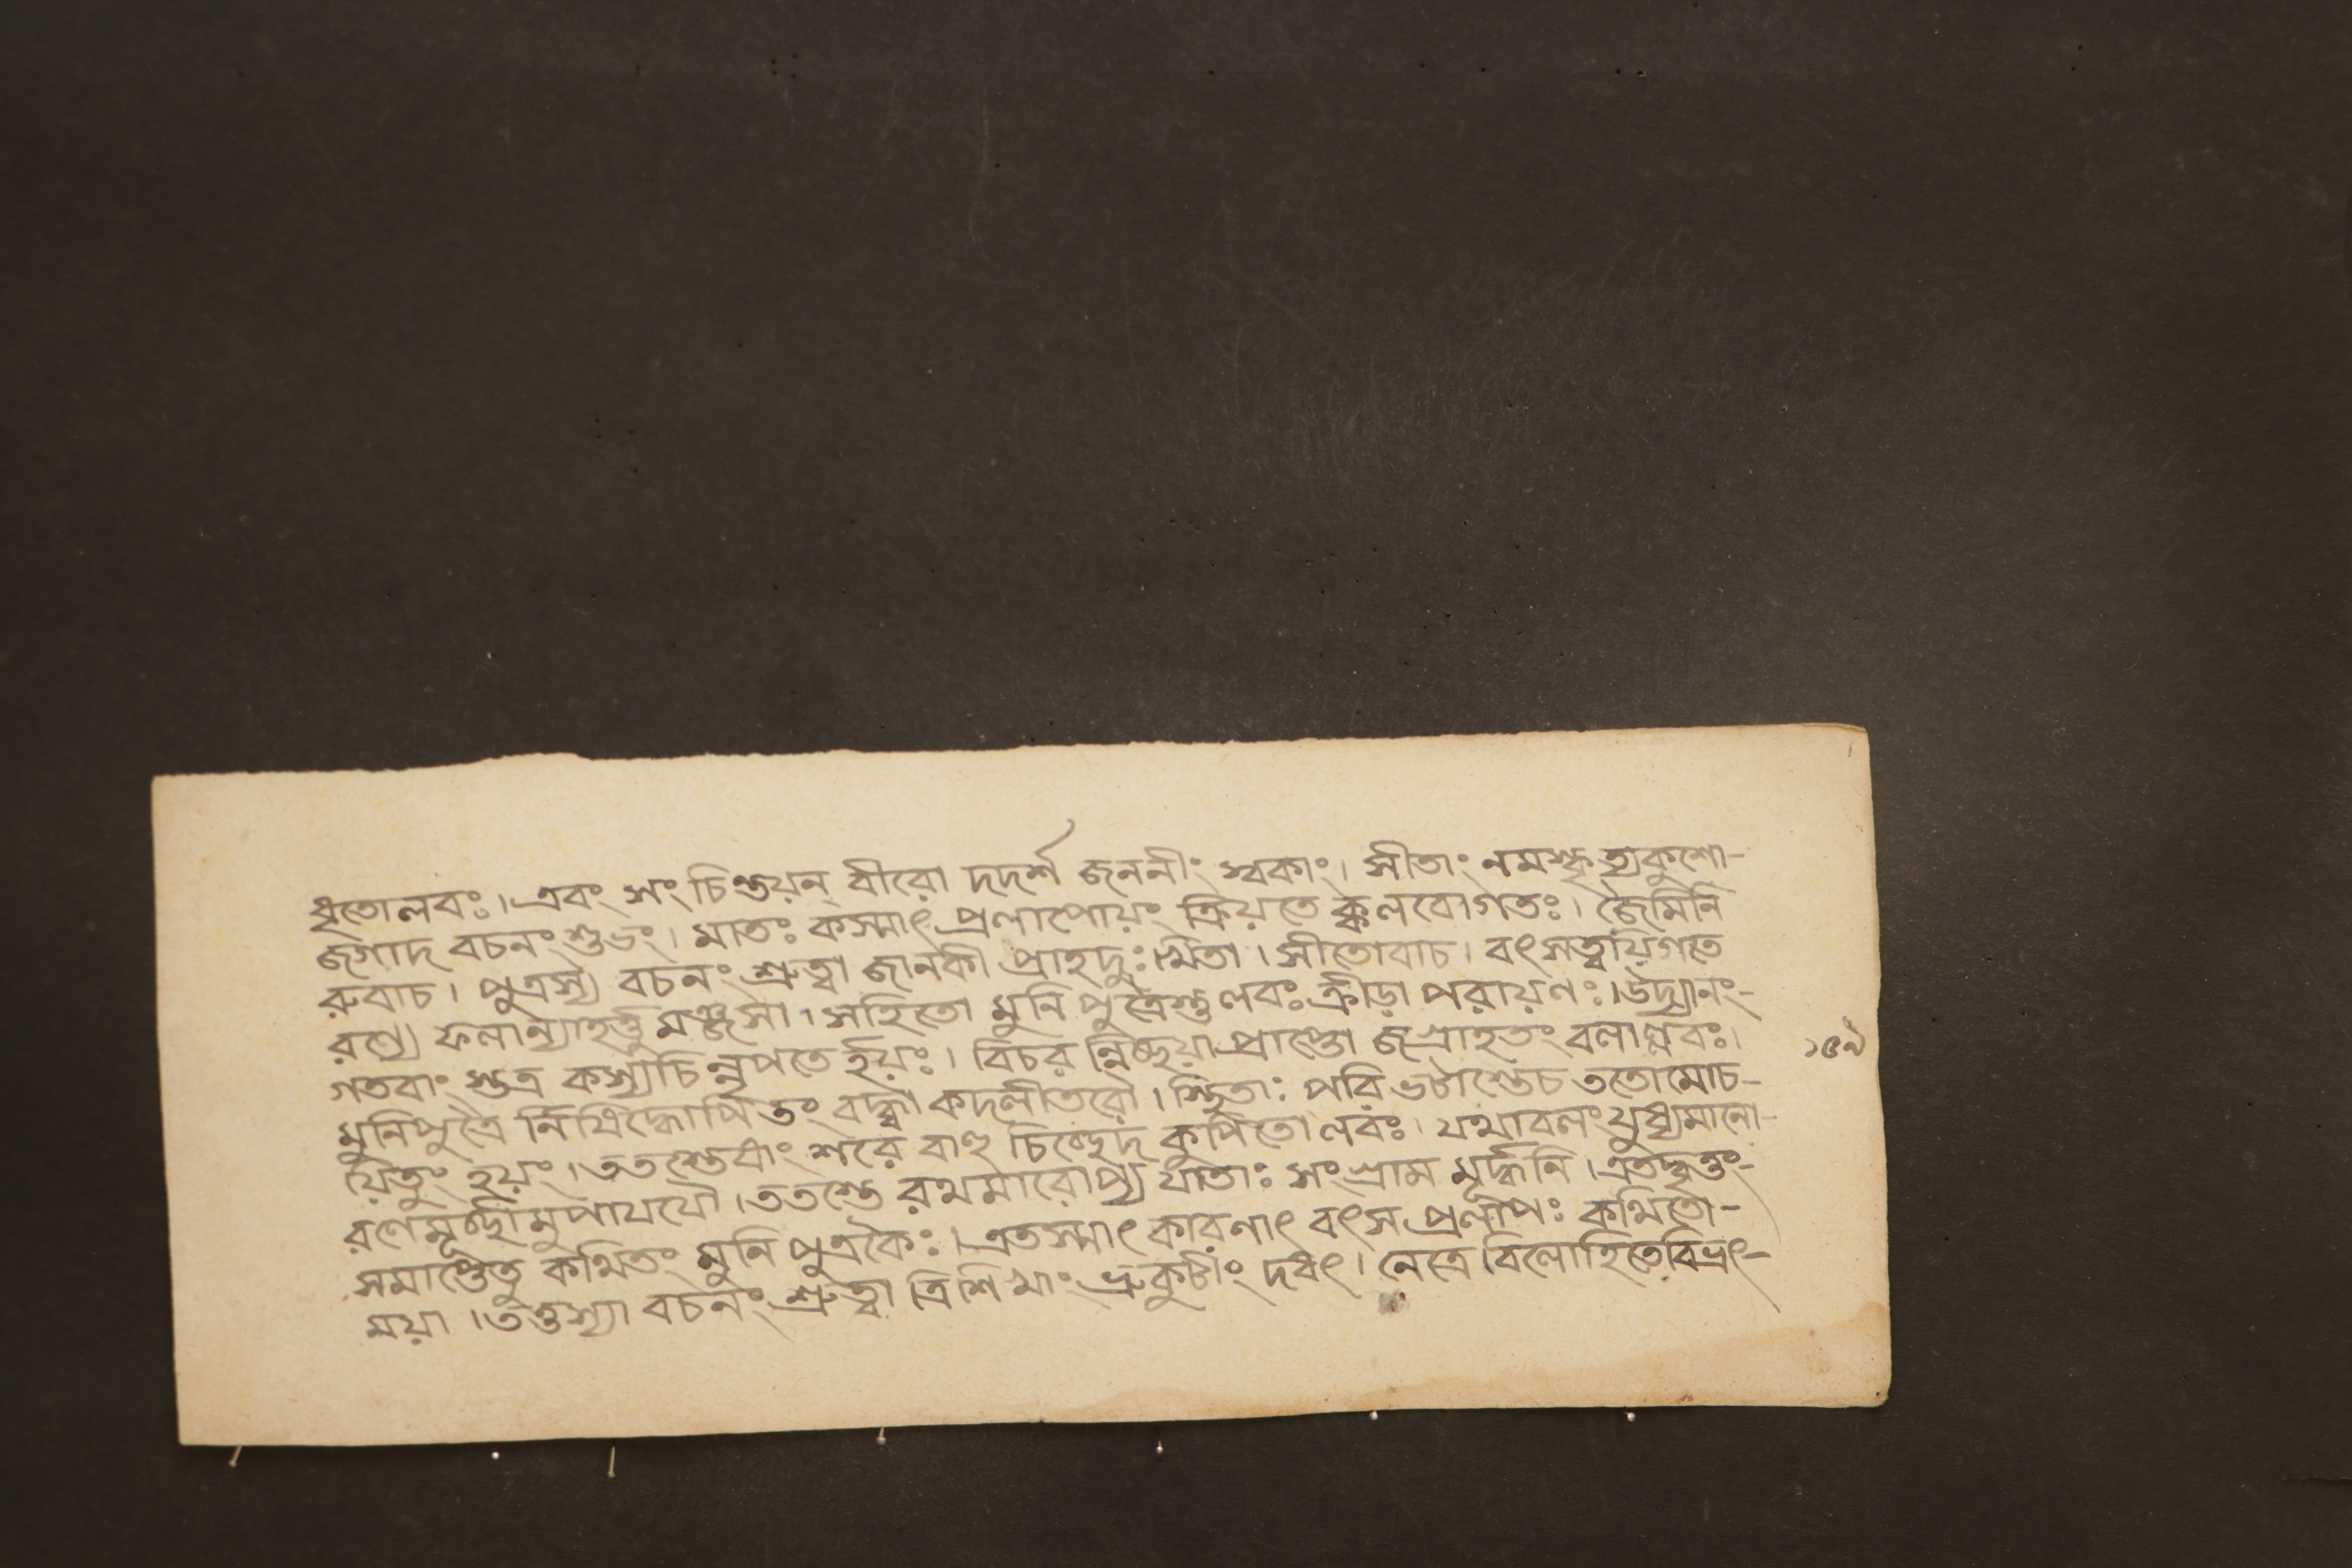 ধৃতোলবঃ। এবং সংচিন্তয়ন্ বীরো দদর্শ জননীং স্বকাং। সীতাং নমস্কৃত্যকুশো-
জগাদ বচনং শুভং। মাতঃ কস্মাৎ প্রলাপোয়ং ক্রিয়তে ক্কলবোগতঃ। জৈমিনি
রুবাচ। পুত্রস্য বচনং শ্রুত্বা জানকী প্রাহদুঃখিতা। সীতোবাচ। বৎসত্বয়িগতে
রণ্যে ফলান্যাহর্ত্তুমঞ্জসা। সহিতো মুনিপুত্রৈস্তুলবঃ ক্রীড়াপরায়ণঃ। উদ্যানং-
গতবাং স্তত্র কস্যচিন্নৃপতের্হয়ঃ। বিচরন্নিচ্ছয়াপ্রাপ্তো জগ্রাহতং বলাল্লবঃ।
মুনিপুত্রৈর্নিষিদ্ধোপি তং বদ্ধা কদলীতরৌ। স্থিতাঃ পরিভটাস্তেচ ততোমোচ-
য়িতুং হয়ং। ততস্তেষাং শরৈর্বাহু চিচ্ছেদ কুপিতোলবঃ। যথাবলং যুধ্যমানো-
রণেমূর্চ্ছামুপাযযৌ। ততস্তে রথমারোপ্য যাতাঃ সংগ্রামমূর্দ্ধনি। এতদ্বৃত্তং-
সমাপ্তেতু কথিতং মুনিপুত্রকৈঃ। এতস্মাৎ কারণাৎ বৎস প্রলাপঃ কথিতো-
ময়া। তত্তস্যা বচনং শ্রুত্বা ত্রিশিখাং ভ্রুকুটীং দধৎ। নেত্রে বিলোহিতেবিভ্রৎ-
১৫৯